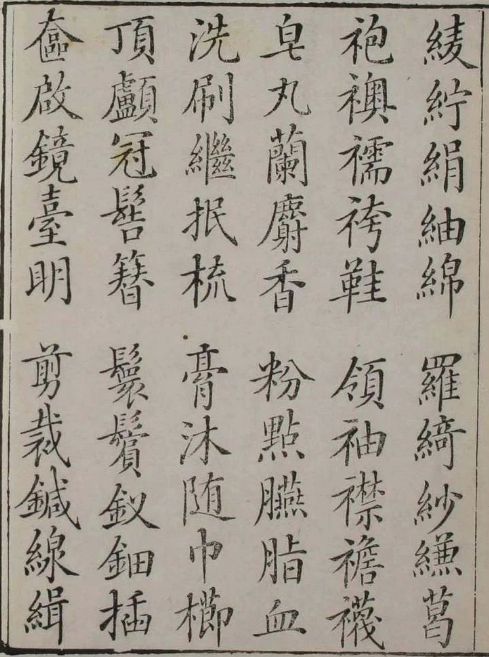 綾紵絹紬綿　羅綺紗縑葛
袍襖襦袴鞋　領袖襟襜襪
皂丸蘭麝香　粉點臙脂血
洗刷繼抿梳　膏沐随巾櫛
頂顱冠髻簪　鬟鬢釵鈿插
奩啟鏡臺明　剪裁鍼線緝